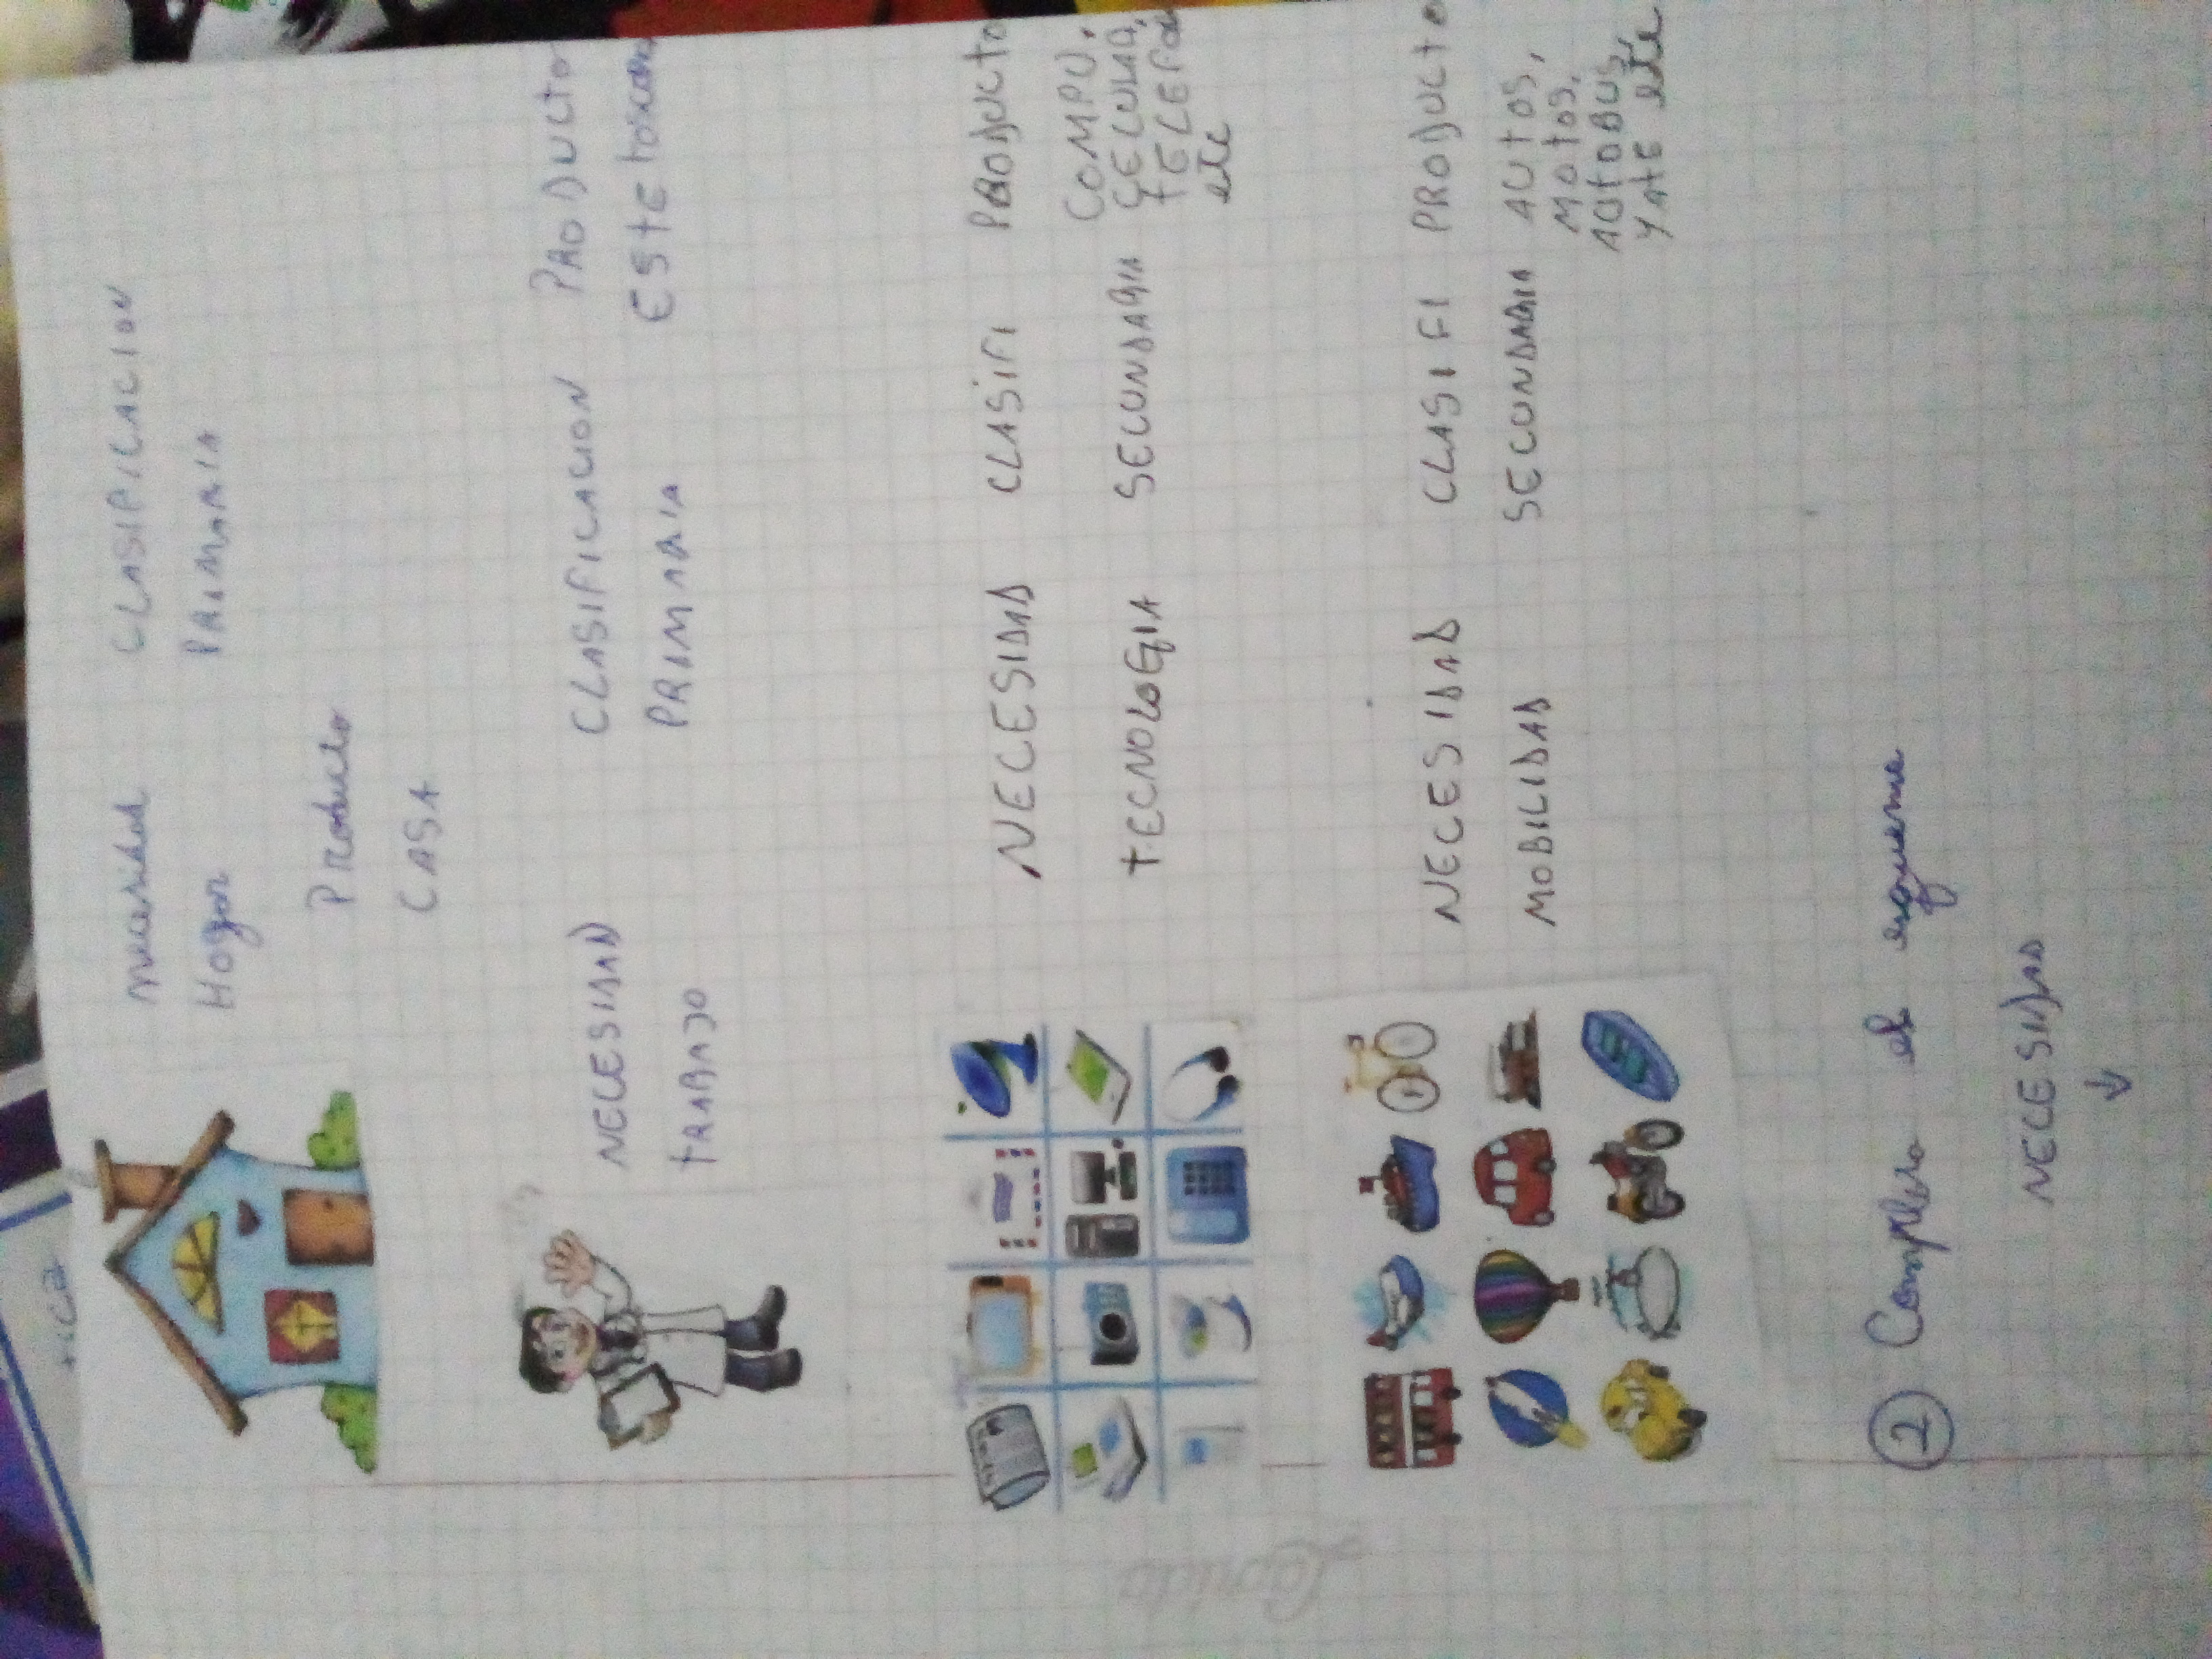 necesidad CLASIFICACION
Hogar PRIMARIA
Producto
CASA
NECESIDAD CLASIFICACION PRODUCTO
TRABAJO PRIMARIA ESTETOSCO
NECESIDAD CLASIFI PRODUCTO
TECNOLOGIA SECUNDARIA COMPU,
CELULAR,
TELEFO
etc
NECESIDAD CLASIFI PRODUCTO
MOBILIDAD SECUNDARIA AUTOS,
MOTOS,
AUTOBUS,
YATE etc
2 Completo el esquema
NECESIDAD
↓
Laprida